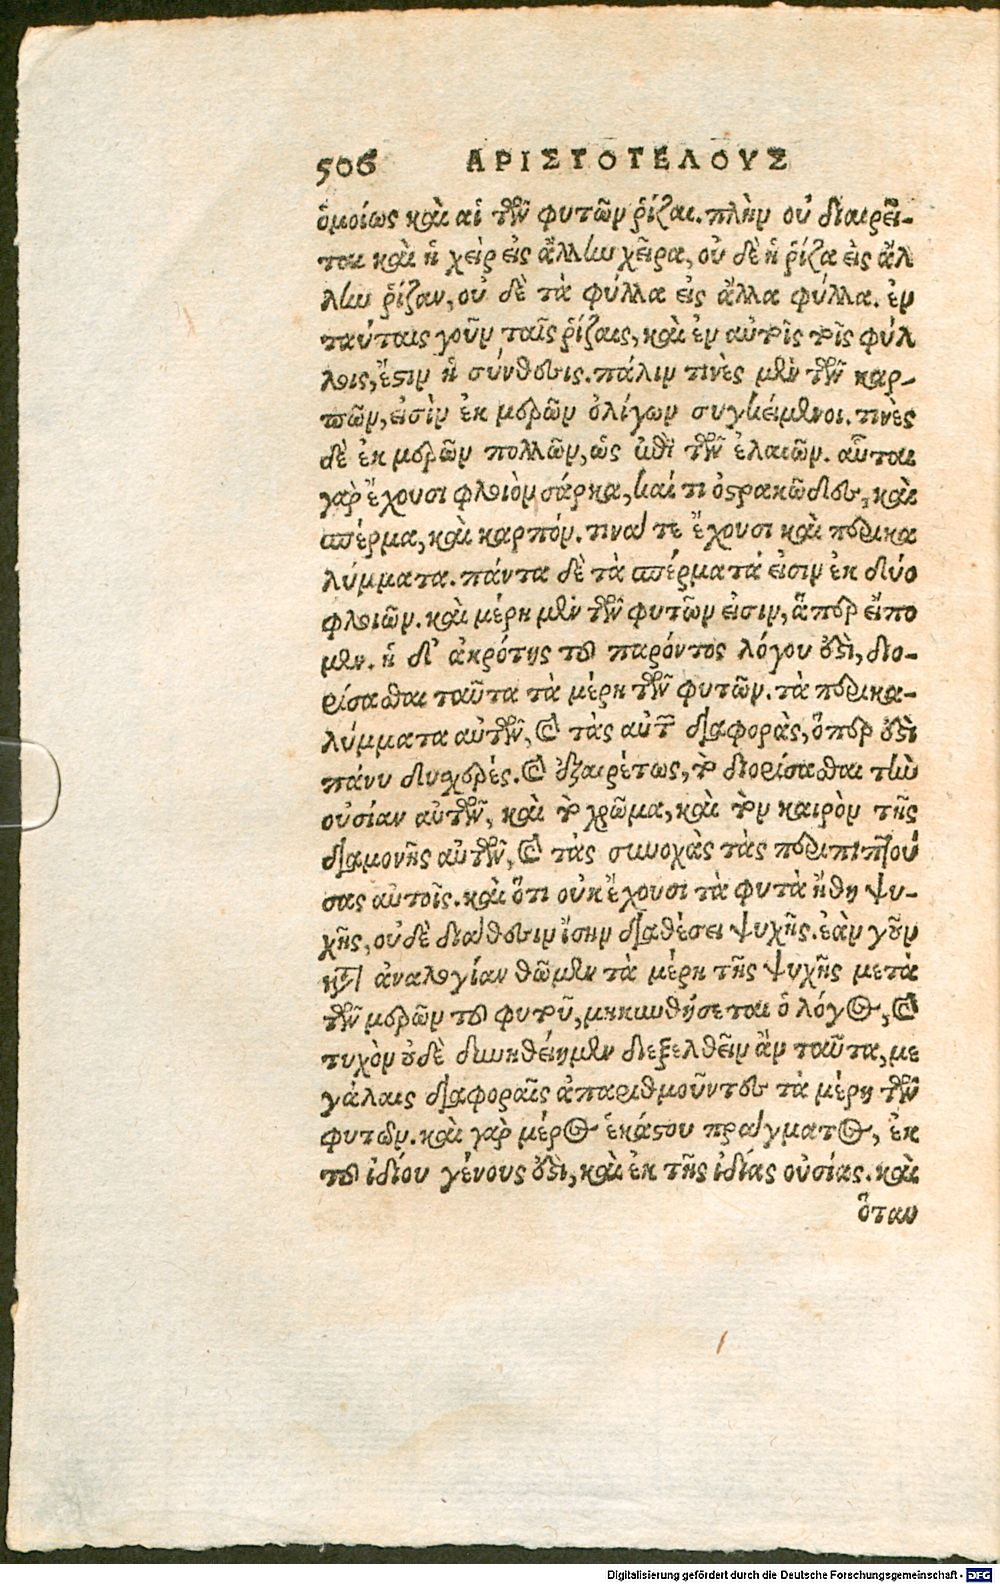 506 ΑΡΙΣΤΟΤΕΛΟΥΣ
ὁμοίως καὶ αἱ τῶν φυτῶν ῥίζαι. πλὴν οὐ διαιρεῖ-
ται καὶ ἡ χεὶρ εἰς ἄλλην χεῖρα, οὐ δὲ ἡ ῥίζα εἰς ἄλ
λην ῥίζαν, οὐ δὲ τὰ φύλλα εἰς ἄλλα φύλλα. ἐν
ταύταις γοῦν ταῖς ῥίζαις, καὶ ἐν αὐτοῖς τοῖς φύλ
λοις, ἔστιν ἡ σύνθεσις. πάλιν τινὲς μὲν τῶν καρ-
πῶν, εἰσὶν ἐκ μερῶν ὀλίγων συγκείμενοι. τινὲς
δὲ ἐκ μερῶν πολλῶν, ὡς ἐπὶ τῶν ἐλαιῶν. αὗται
γὰρ ἔχουσι φλοιὸν σάρκα, καί τι ὀστρακῶδες, καὶ
σπέρμα, καὶ καρπόν. τινά τε ἔχουσι καὶ περικα
λύμματα. πάντα δὲ τὰ σπέρματά εἰσιν ἐκ δύο
φλοιῶν. καὶ μέρη μὲν τῶν φυτῶν εἰσιν, ἅπερ εἴπο
μεν. ἡ δ' ἀκρότης τοῦ παρόντος λόγου ἐστὶ, διο-
ρίσασθαι ταῦτα τὰ μέρη τῶν φυτῶν. τὰ περικα-
λύμματα αὐτῶν, καὶ τὰς αὐτῶν διαφορὰς, ὅπερ ἐστὶ
πάνυ δυσχερές. καὶ ἐξαιρέτως, τὸ διορίσασθαι τὴν
οὐσίαν αὐτῶν, καὶ τὸ χρῶμα, καὶ τὸν καιρὸν τῆς
διαμονῆς αὐτῶν, καὶ τὰς συνοχὰς τὰς περιπιπτού
σας αὐτοῖς. καὶ ὅτι οὐκ ἔχουσι τὰ φυτὰ ἤθη ψυ-
χῆς, οὐδὲ διάθεσιν ἴσην διαθέσει ψυχῆς. ἐὰν γοῦν
κατὰ ἀναλογίαν θῶμεν τὰ μέρη τῆς ψυχῆς μετὰ
τῶν μερῶν τοῦ φυτοῦ, μηκυνθήσεται ὁ λόγος, καὶ
τυχὸν οὐδὲ δυνηθείημεν διεξελθεῖν ἂν ταῦτα, με
γάλαις διαφοραῖς ἀπαριθμοῦντες τὰ μέρη τῶν
φυτῶν. καὶ γὰρ μέρος ἑκάστου πράγματος, ἐκ
τοῦ ἰδίου γένους ἐστὶ, καὶ ἐκ τῆς ἰδίας οὐσίας. καὶ
ὅταν
Digitalisierung gefördert durch die Deutsche Forschungsgemeinschaft - DFG